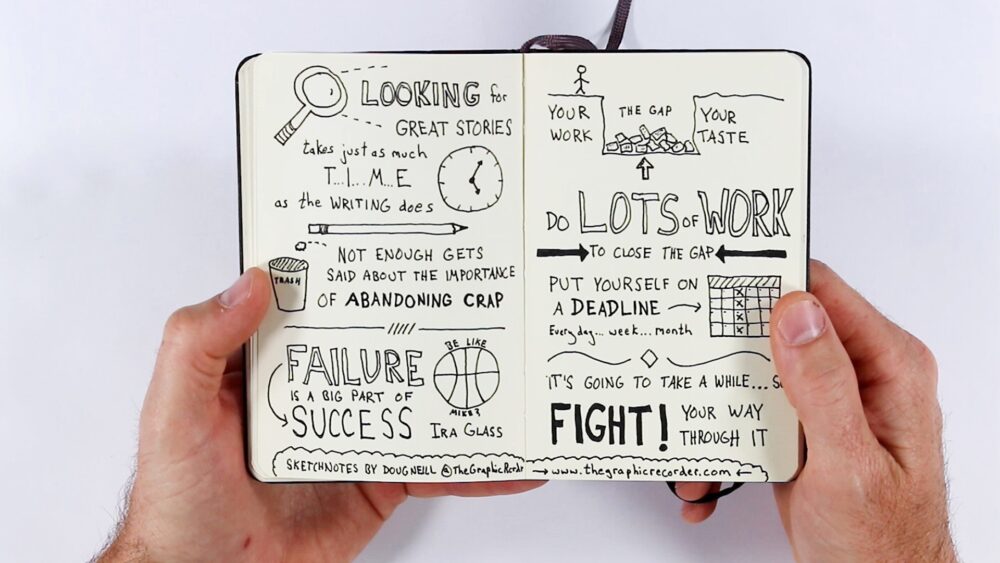 LOOKING for
GREAT STORIES
takes just as much
T...I...M...E
as the WRITING does
NOT ENOUGH GETS
SAID ABOUT THE IMPORTANCE
OF ABANDONING CRAP
TRASH
FAILURE
IS A BIG PART OF
SUCCESS
BE LIKE
MIKE?
IRA GLASS
SKETCHNOTES BY DOUG NEILL @TheGraphicRecrdr
YOUR
WORK
THE GAP
YOUR
TASTE
DO LOTS OF WORK
TO CLOSE THE GAP
PUT YOURSELF ON
A DEADLINE →
Every day... week... month
IT'S GOING TO TAKE A WHILE...
FIGHT! YOUR WAY
THROUGH IT
→ www.thegraphicrecorder.com ←